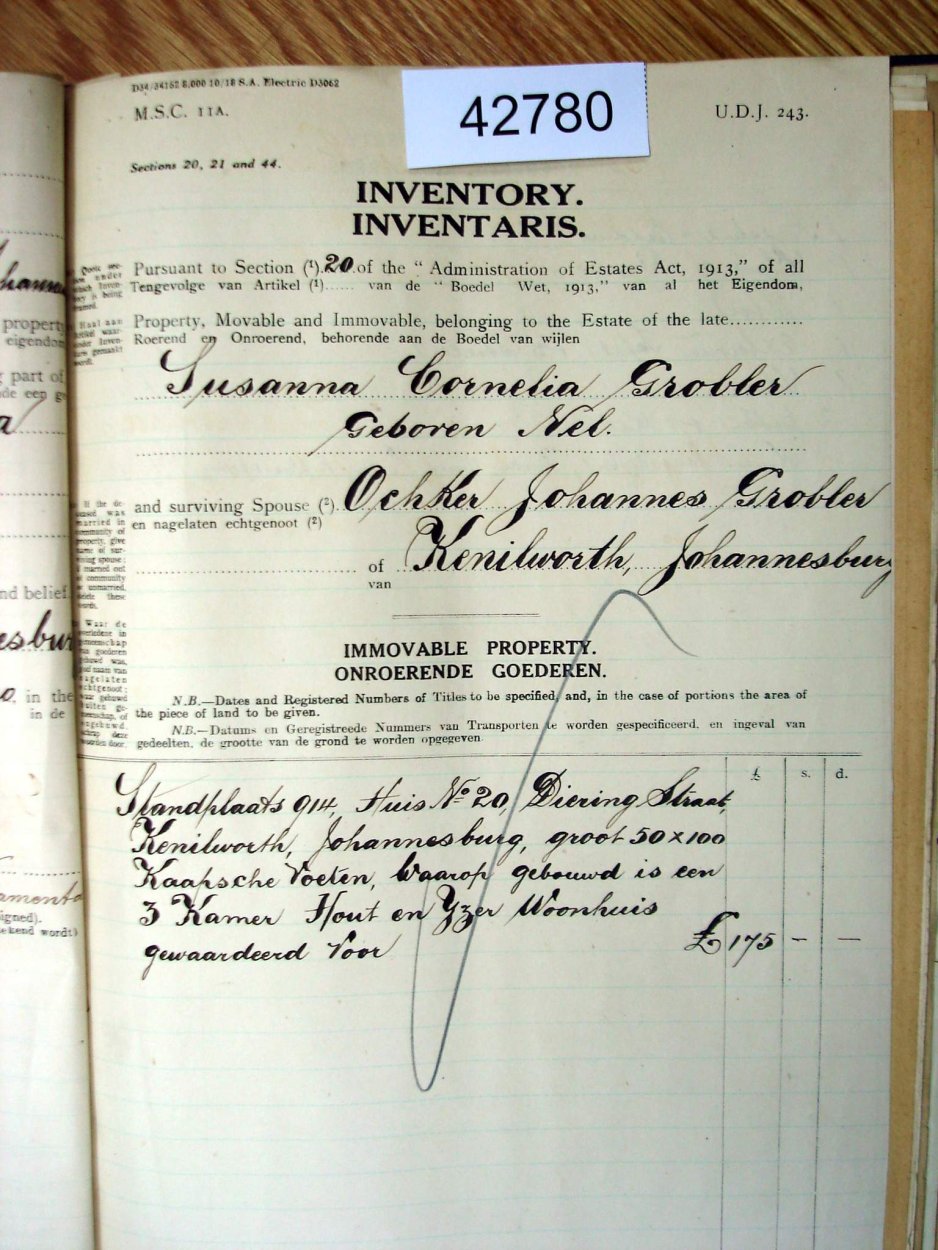 D34/34162 8,000 10/18 S.A. Electric D3062
42780
M.S.C. 11A.
U.D.J. 243.
Sections 20, 21 and 44.
INVENTORY.
INVENTARIS.
Pursuant to Section (¹) 20 of the “ Administration of Estates Act, 1913,” of all
Tengevolge van Artikel (¹)...... van de “ Boedel Wet, 1913,” van al het Eigendom,
Property, Movable and Immovable, belonging to the Estate of the late............
Roerend en Onroerend, behorende aan de Boedel van wijlen
Susanna Cornelia Grobler
Geboren Nel.
and surviving Spouse (²) Ochker Johannes Grobler
en nagelaten echtgenoot (²)
of Kenilworth, Johannesburg
van
IMMOVABLE PROPERTY.
ONROERENDE GOEDEREN.
N.B.—Dates and Registered Numbers of Titles to be specified, and, in the case of portions the area of
the piece of land to be given.
N.B.—Datums en Geregistreede Nummers van Transporten te worden gespecificeerd, en ingeval van
gedeelten, de grootte van de grond te worden opgegeven
£ s. d.
Standplaats 914, Huis No 20, Diering Straat,
Kenilworth, Johannesburg, groot 50 x 100
Kaapsche Voeten, Waarop gebouwd is een
3 Kamer Hout en Yzer Woonhuis
gewaardeerd Voor £ 175 – –
property
eigendom
part of
nd belief
in the
in de
igned).
ekend wordt)